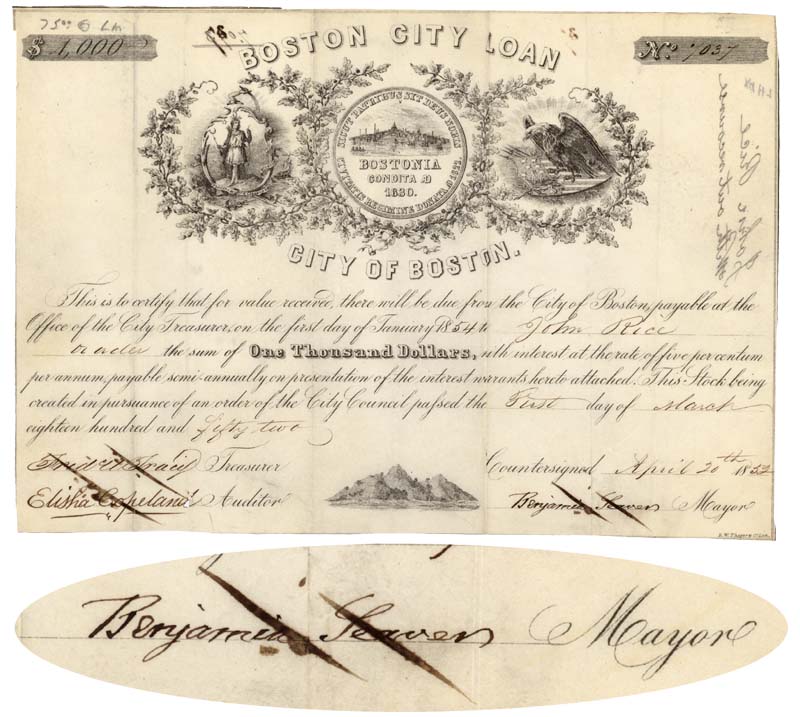 75⁰⁰ @ L.M.
$ 1,000
No. 7037
BOSTON CITY LOAN
SICUT PATRIBUS SIT DEUS NOBIS
BOSTONIA
CONDITA AD
1630.
CIVITATIS REGIMINE DONATA AD 1822.
CITY OF BOSTON.
This is to certify that for value received, there will be due from the City of Boston, payable at the
Office of the City Treasurer, on the first day of January 1854 to John Rice
or order the sum of One Thousand Dollars, with interest at the rate of five per centum
per annum, payable semi-annually on presentation of the interest warrants hereto attached. This Stock being
created in pursuance of an order of the City Council passed the First day of March
eighteen hundred and fifty two
Fred U. Tracy Treasurer
Countersigned April 20th 1852
Elisha Copeland Auditor
Benjamin Seaver Mayor
Benjamin Seaver Mayor